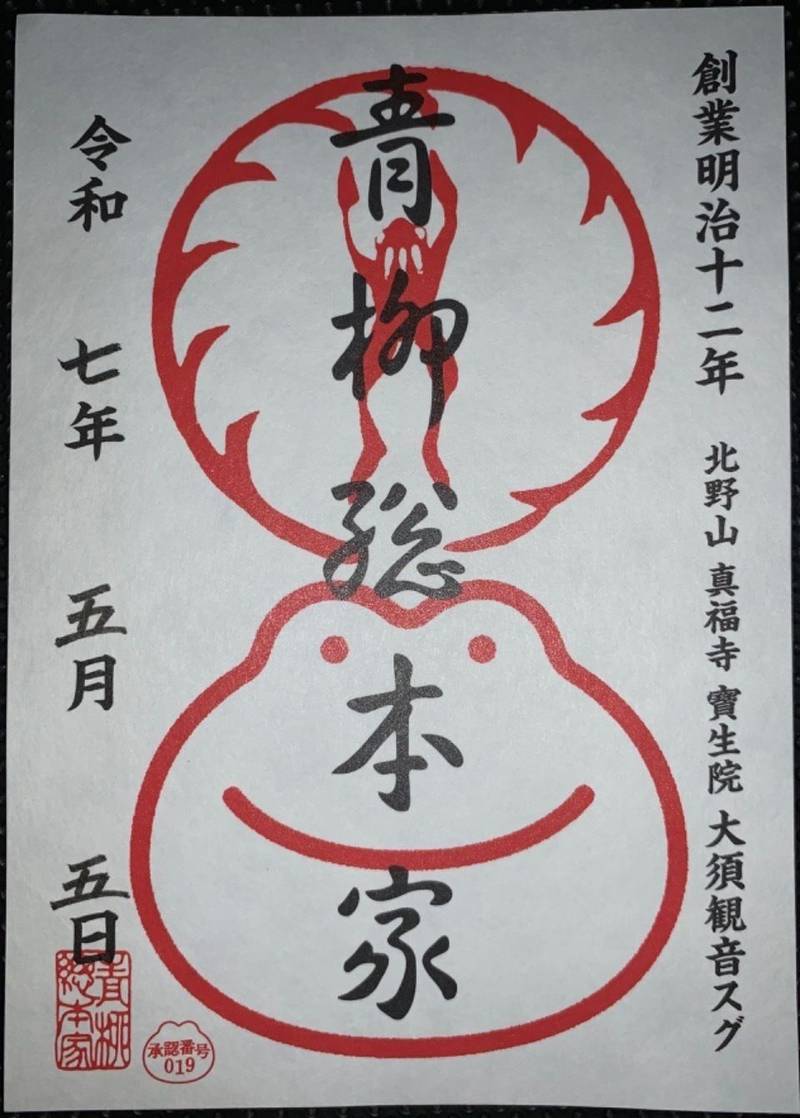 創業明治十二年 北野山 真福寺 寳生院 大須観音スグ
青柳総本家
令和 七年 五月 五日
青柳
総本家
承認番号
019